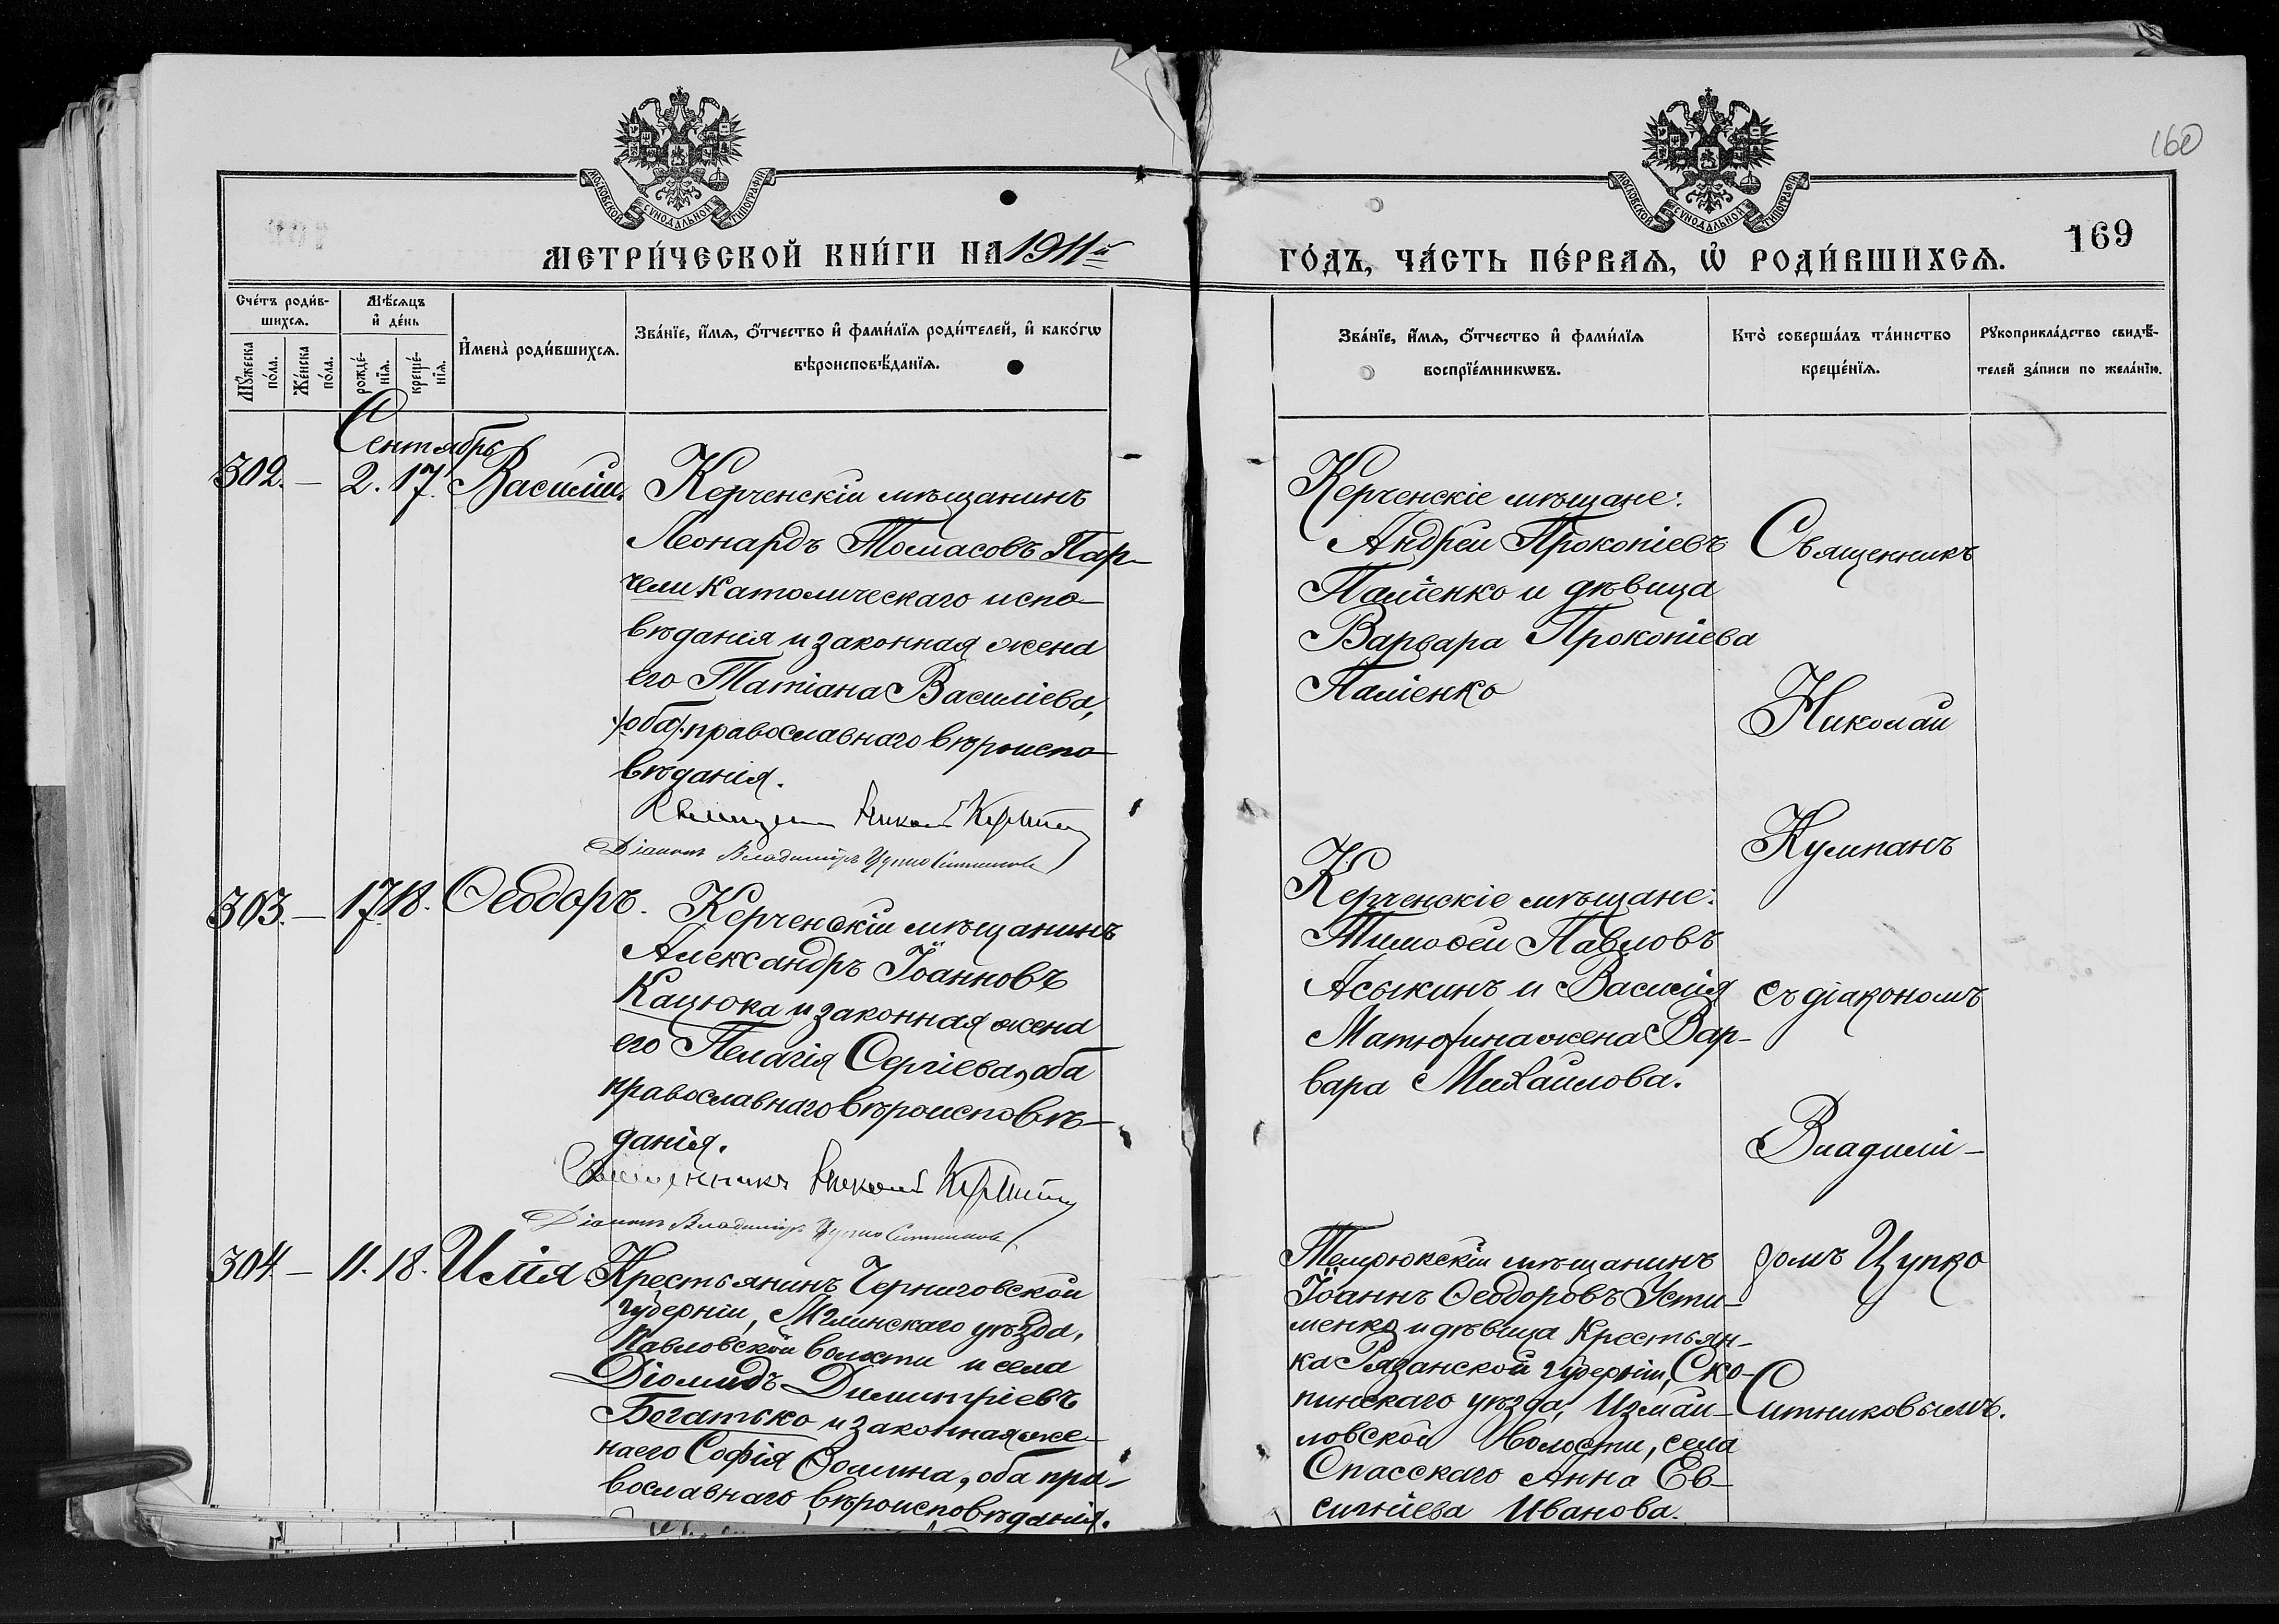 160
169
МОСКОВСКОЙ СѴНОДАЛЬНОЙ ТИПОГРАФІИ
МОСКОВСКОЙ СѴНОДАЛЬНОЙ ТИПОГРАФІИ
МЕТРИ́ЧЕСКОЙ КНИ́ГИ НА 1911й
ГО́ДЪ, ЧА́СТЬ ПЕ́РВАѦ, Ѡ҆ РОДИ́ВШИХСѦ.
Сче́тъ роди́в-
шихсѧ.
Мꙋ́жеска по́ла.
Же́нска по́ла.
Мѣ́сѧцъ и҆ де́нь
рожде́-нїѧ.
креще́-нїѧ.
И҆мена̀ роди́вшихсѧ.
Зва́нїе, и҆́мѧ, ѻ҆́тчество и҆ фами́лїѧ роди́телей, и҆ како́гѡ
вѣроисповѣ́данїѧ.
Зва́нїе, и҆́мѧ, ѻ҆́тчество и҆ фами́лїѧ
воспрїе́мникѡвъ.
Кто̀ соверша́лъ та́инство
креще́нїѧ.
Рꙋкоприкла́дство свидѣ́-
телей за́писи по жела́нїю.
Сентябрь
302. – 2. 17. Василій.
Керченскій мѣщанинъ
Леонардъ Томасовъ Пар-
чели католическаго испо-
вѣданія и законная жена
его Татіана Василіева,
/оба/ православнаго вѣроиспо-
вѣданія.
Священникъ Николай
Діаконъ Владиміръ Цупко Ситниковъ
Керченскіе мѣщане:
Андрей Прокопіевъ
Паліенко и дѣвица
Варвара Прокопіева
Паліенко
Священникъ
Николай
Кумпанъ
съ діакономъ
Владимі-
ромъ Цупко
Ситниковымъ.
303. – 17 18. Ѳеодоръ.
Керченскій мѣщанинъ
Александръ Іоанновъ
Кацюка и законная жена
его Пелагія Сергіева, оба
православнаго вѣроисповѣ-
данія.
Священникъ Николай
Діаконъ Владиміръ Цупко Ситниковъ
Керченскіе мѣщане:
Тимоѳей Павловъ
Асыкинъ и Василія
Матюхина жена Вар-
вара Михаилова.
304 – 11. 18. Илія
Крестьянинъ Черниговской
губерніи, Мглинскаго уѣзда,
Павловской волости и села
Діомидъ Димитріевъ
Богатько и законная же-
на его Софія Ѳомина, оба пра-
вославнаго вѣроисповѣданія.
Темрюкскій мѣщанинъ
Іоаннъ Ѳеодоровъ Усти-
менко и дѣвица крестьян-
ка Рязанской губерніи, Ско-
пинскаго уѣзда, Измай-
ловской волости, села
Спасскаго Анна Ев-
сигніева Иванова.